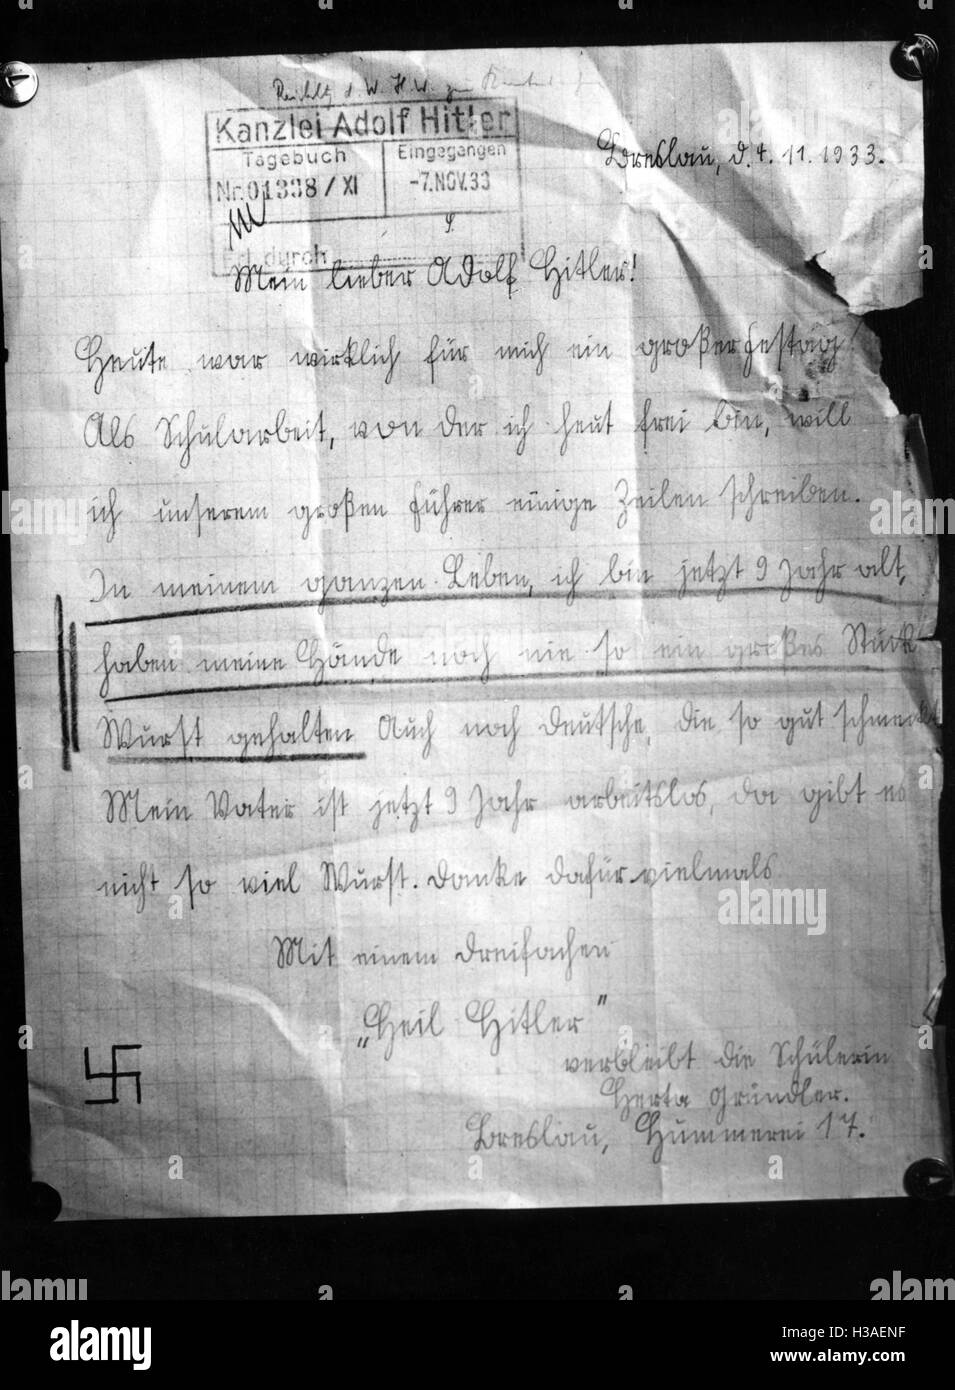 Kanzlei Adolf Hitler
Tagebuch
Eingegangen
Nr. 01338 / XI
-7. NOV. 33
Erl. durch
Breslau, d. 4. 11. 1933.
Mein lieber Adolf Hitler!
Heute war wirklich für mich ein großer Festtag!
Als Schularbeit, von der ich heut frei bin, will
ich unserem großen Führer einige Zeilen schreiben.
In meinem ganzen Leben, ich bin jetzt 9 Jahr alt,
haben meine Hände noch nie so ein großes Stück
Wurst gehalten Auch noch deutsche, die so gut schmeckt
Mein Vater ist jetzt 9 Jahr arbeitslos, da gibt es
nicht so viel Wurst. Danke dafür vielmals
Mit einem dreifachen
„Heil Hitler"
verbleibt die Schülerin
Herta Gründler.
Breslau, Hummerei 17.
alamy
Image ID: H3AENF
www.alamy.com